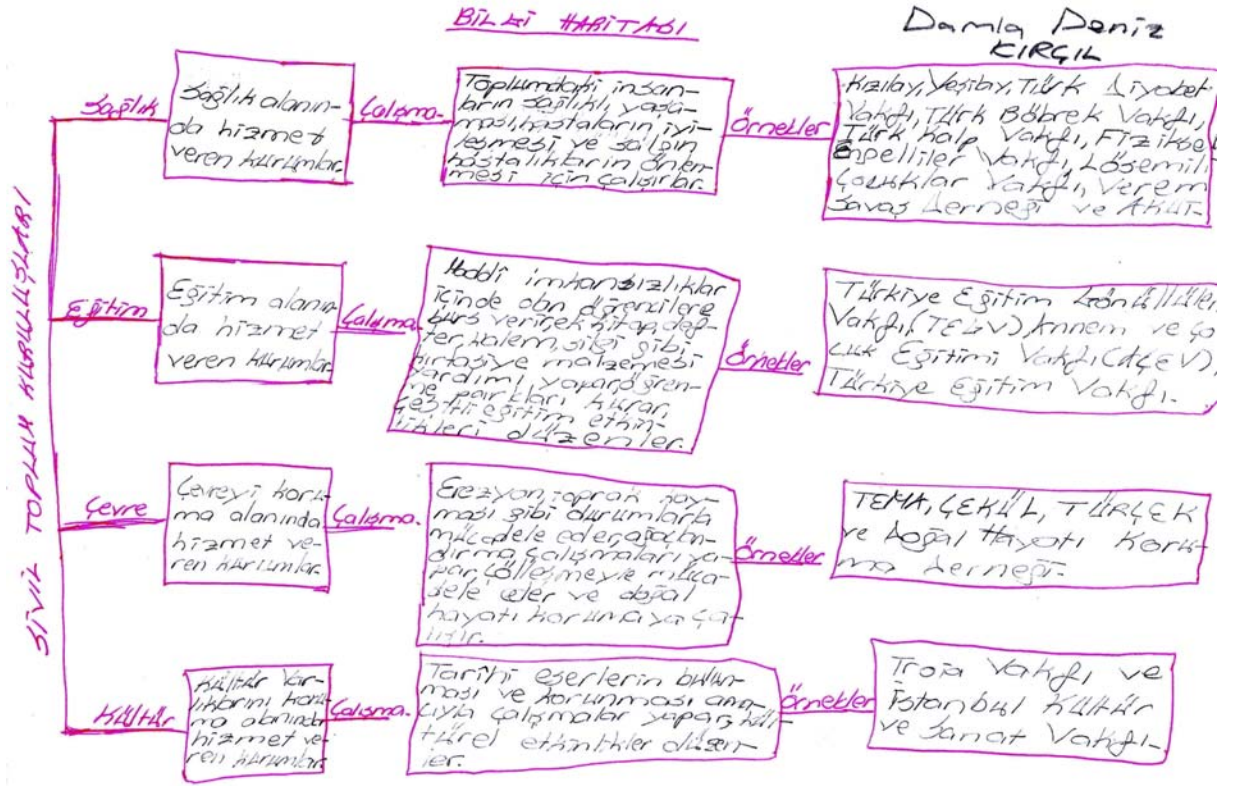 BİLGİ HARİTASI
Damla Deniz
KIRÇIL
SİVİL TOPLUM KURULUŞLARI
Sağlık
Sağlık alanın-
da hizmet
veren kurumlar.
Çalışma.
Toplumdaki insan-
ların sağlıklı, yaşa-
ması, hastaların iyi-
leşmesi ve salgın
hastalıkların önlen-
mesi için çalışırlar.
Örnekler
Kızılay, Yeşilay, Türk Diyabet
Vakfı, Türk Böbrek Vakfı,
Türk Kalp Vakfı, Fiziksel
Engelliler Vakfı, Lösemili
Çocuklar Vakfı, Verem
Savaş Derneği ve AKUT.
Eğitim
Eğitim alanın-
da hizmet
veren kurumlar.
Çalışma.
Maddi imkansızlıklar
içinde olan öğrencilere
burs vererek kitap, def-
ter, kalem, silgi gibi
kırtasiye malzemesi
yardımı yapar, öğren-
me parkları kurar,
çeşitli eğitim etkin-
likleri düzenler.
Örnekler
Türkiye Eğitim Gönüllüleri
Vakfı, (TEGV), Annem ve Ço
cuk Eğitimi Vakfı (AÇEV),
Türkiye Eğitim Vakfı.
Çevre
Çevreyi koru-
ma alanında
hizmet ve-
ren kurumlar.
Çalışma.
Erezyon, toprak kay-
ması gibi durumlarla
mücadele eder, ağaçlan-
dırma çalışmaları ya-
par, çölleşmeyle müca-
dele eder ve doğal
hayatı korumaya ça-
lışır.
Örnekler
TEMA, ÇEKÜL, TÜRÇEK
ve Doğal Hayatı Koru-
ma Derneği.
Kültür
Kültür Var-
lıklarını koru-
ma alanında
hizmet ve-
ren kurumlar.
Çalışma.
Tarihi eserlerin bulun-
ması ve korunması ama-
cıyla çalışmalar yapar, kül-
türel etkinlikler düzen-
ler.
Örnekler
Troia Vakfı ve
İstanbul Kültür
ve Sanat Vakfı.